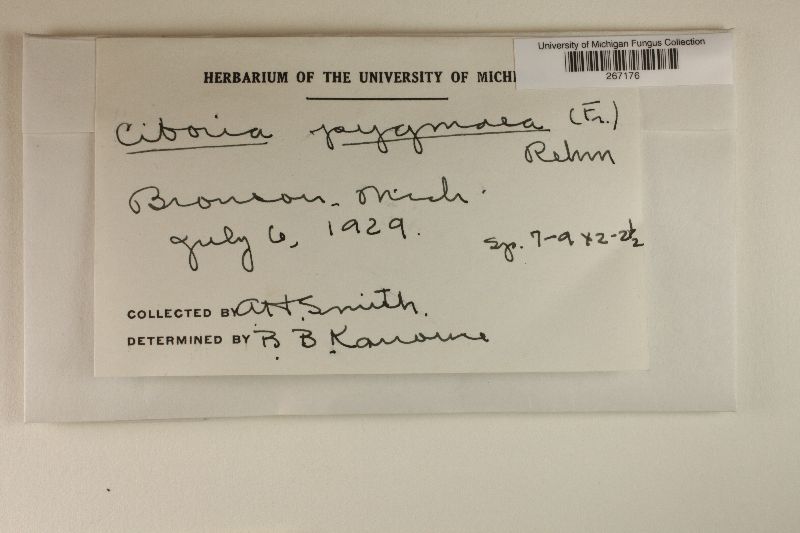 University of Michigan Fungus Collection
267176
HERBARIUM OF THE UNIVERSITY OF MICHI
Ciboria pygmaea (Fr.)
Rehm
Bronson, Mich.
July 6, 1929.
Sp. 7-9 x 2-2½
COLLECTED BY A.H. Smith.
DETERMINED BY B. B. Kanouse